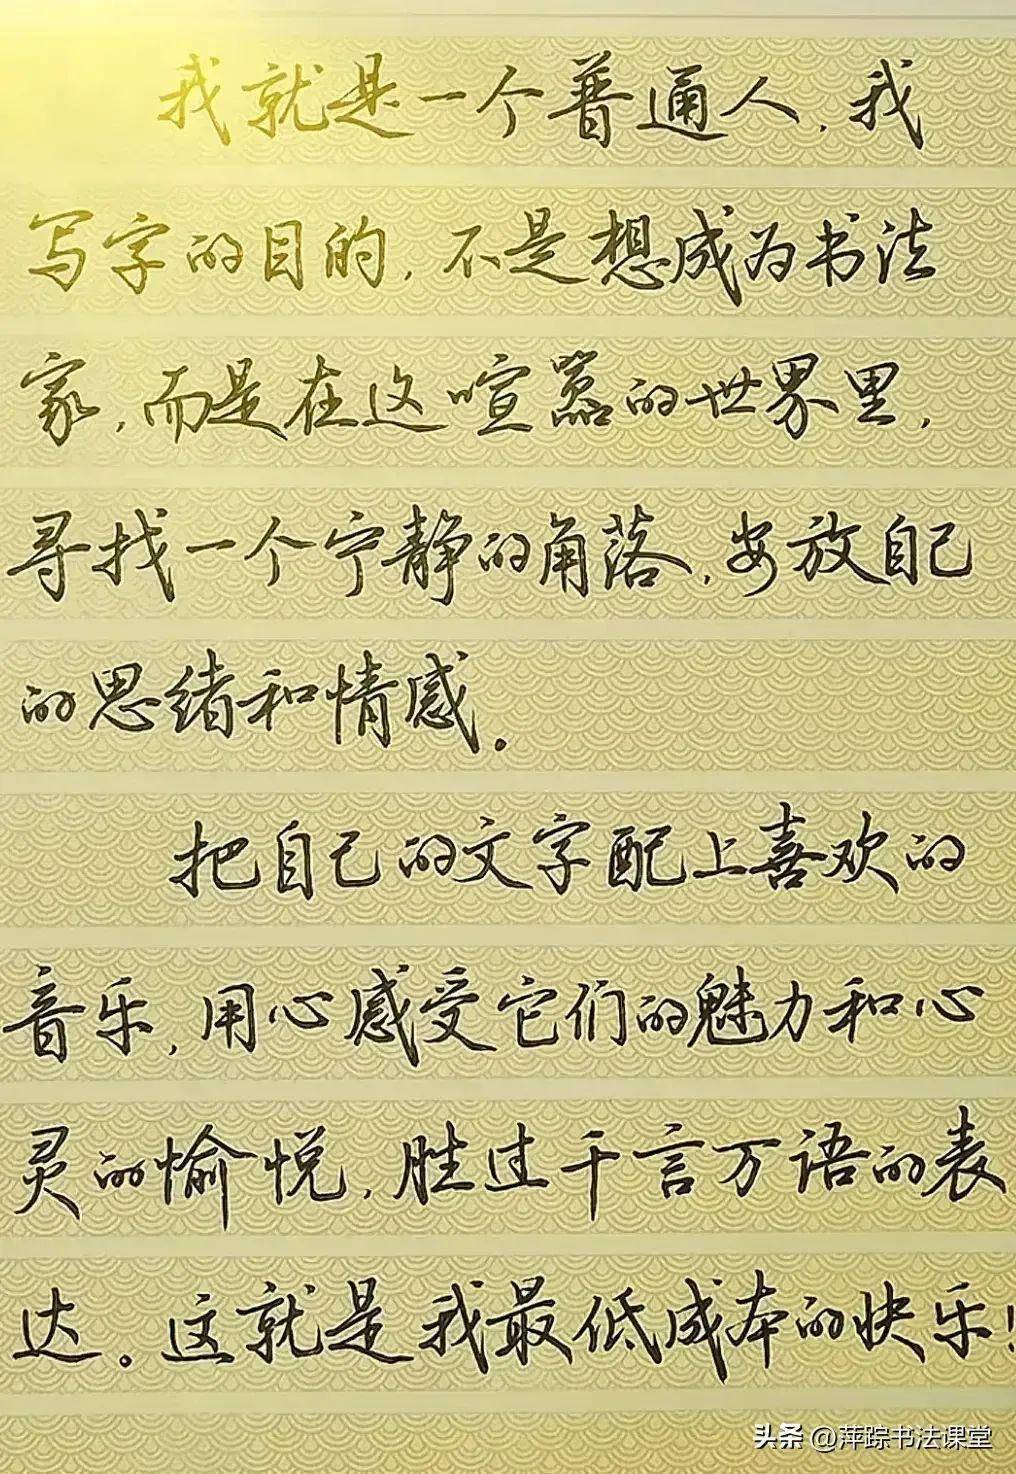 我就是一个普通人,我
写字的目的,不是想成为书法
家,而是在这喧嚣的世界里,
寻找一个宁静的角落,安放自己
的思绪和情感。
把自己的文字配上喜欢的
音乐,用心感受它们的魅力和心
灵的愉悦,胜过千言万语的表
达。这就是我最低成本的快乐!
头条 @萍踪书法课堂